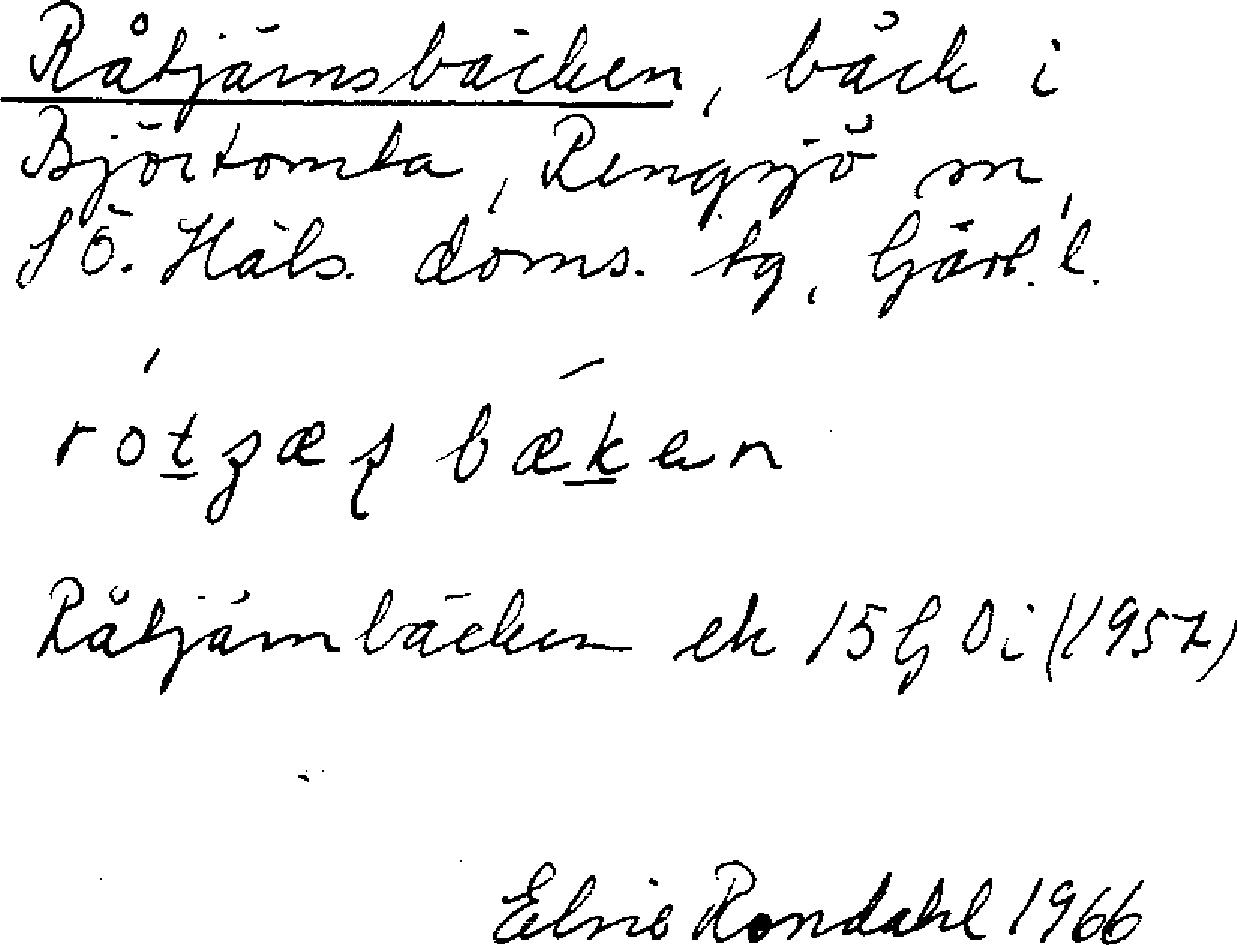 Råtjärnsbäcken, bäck i
Björtomta, Rengsjö sn,
SÖ. Häls. doms. tg, Gävl. l.
rótʒæʂ bækan
Råtjärnbäcken ek 15G 0i (1957)
Elvie Rondahl 1966